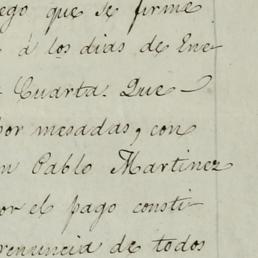 ego que se firme
á los dias de Ene-
Cuarta. Que
por mesadas, con
n Pablo Martinez
or el pago consti-
renuncia de todos